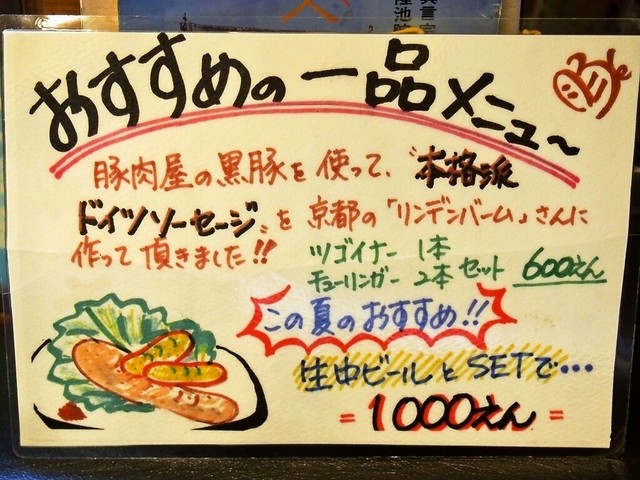 おすすめの一品メニュ〜
豚肉屋の黒豚を使って、〝本格派
ドイツソーセージ〟を京都の「リンデンバーム」さんに
作って頂きました!!
ツゴイナー 1本
チューリンガー 2本 セット 600えん
この夏のおすすめ!!
生中ビールとSETで・・・
=1000えん=